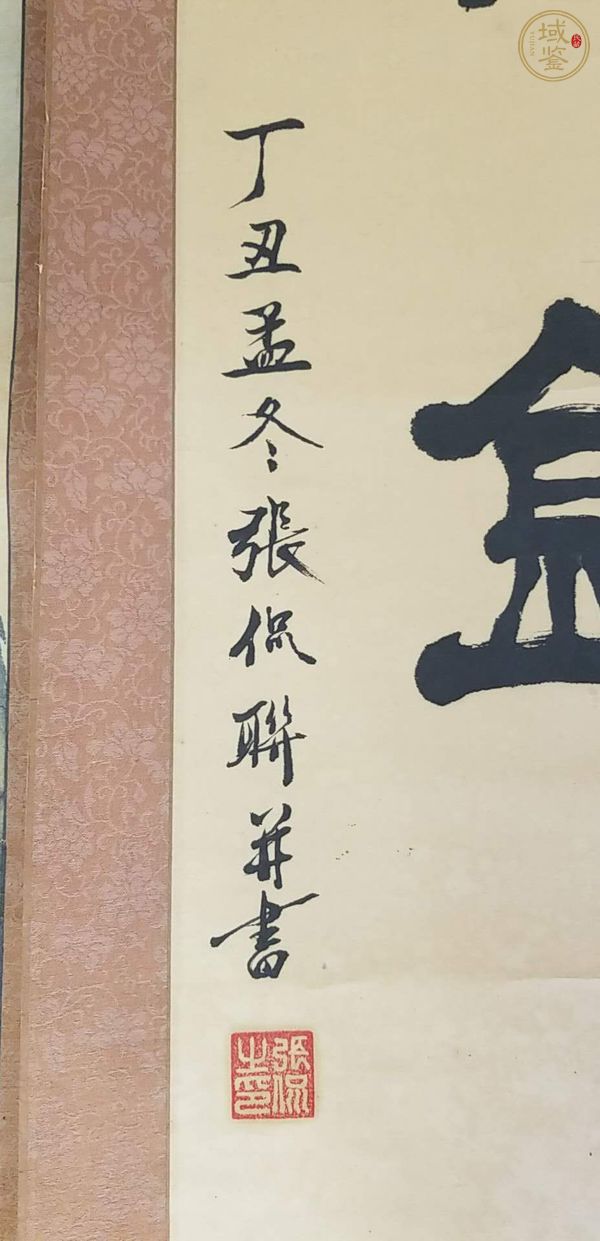 丁丑孟冬張侃聯并書
張侃之印
域鉴
YUJIAN